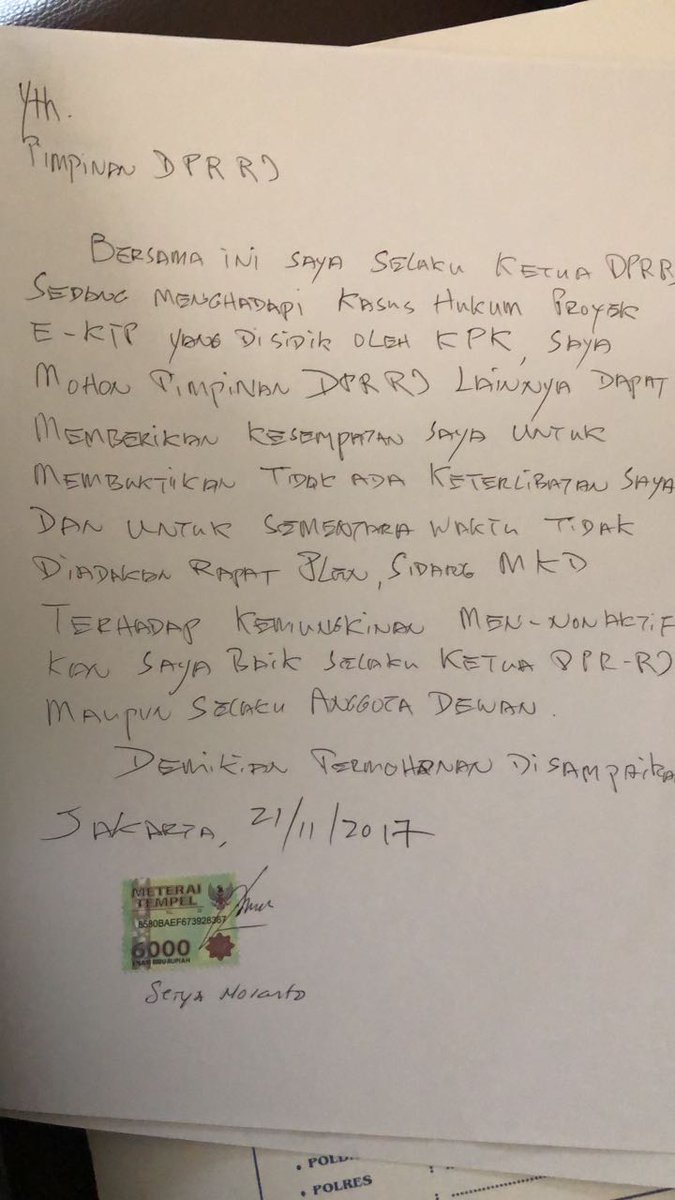 Yth.
PIMPINAN DPR RI
BERSAMA INI SAYA SELAKU KETUA DPR R
SEDANG MENGHADAPI KASUS HUKUM PROYEK
E-KTP YANG DISIDIK OLEH KPK, SAYA
MOHON PIMPINAN DPR RI LAINNYA DAPAT
MEMBERIKAN KESEMPATAN SAYA UNTUK
MEMBUKTIKAN TIDAK ADA KETERLIBATAN SAYA
DAN UNTUK SEMENTARA WAKTU TIDAK
DIADAKAN RAPAT PLENO, SIDANG MKD
TERHADAP KEMUNGKINAN MEN-NONAKTIF
KAN SAYA BAIK SELAKU KETUA DPR-RI
MAUPUN SELAKU ANGGOTA DEWAN.
DEMIKIAN PERMOHONAN DISAMPAIKA
JAKARTA, 21/11/2017
METERAI
TEMPEL
6000
ENAM RIBU RUPIAH
Setya Novanto
• POLD
• POLRES :